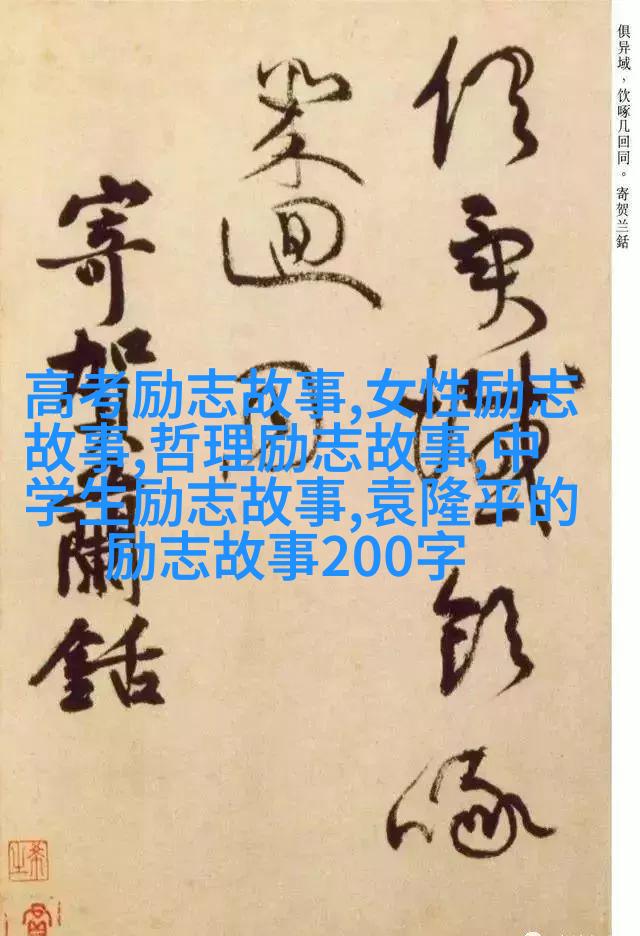 俱异域，饮啄几回同。寄贺兰銛
俱異域飲啄
幾迴同
寄賀蘭銛
高考励志故事,女性励志
故事,哲理励志故事,中
学生励志故事,袁隆平的
励志故事200字